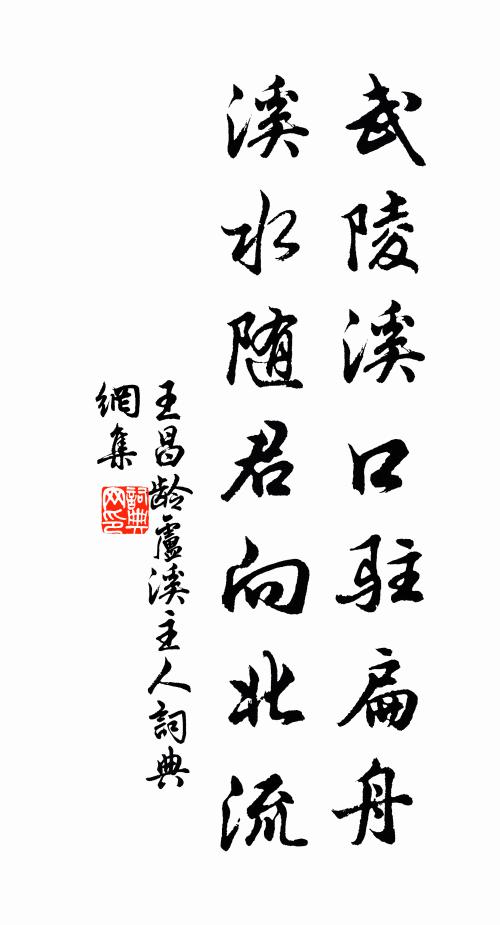 武陵溪口驻扁舟
溪水随君向北流
王昌龄盧溪主人詞典
網集
詞典
网印